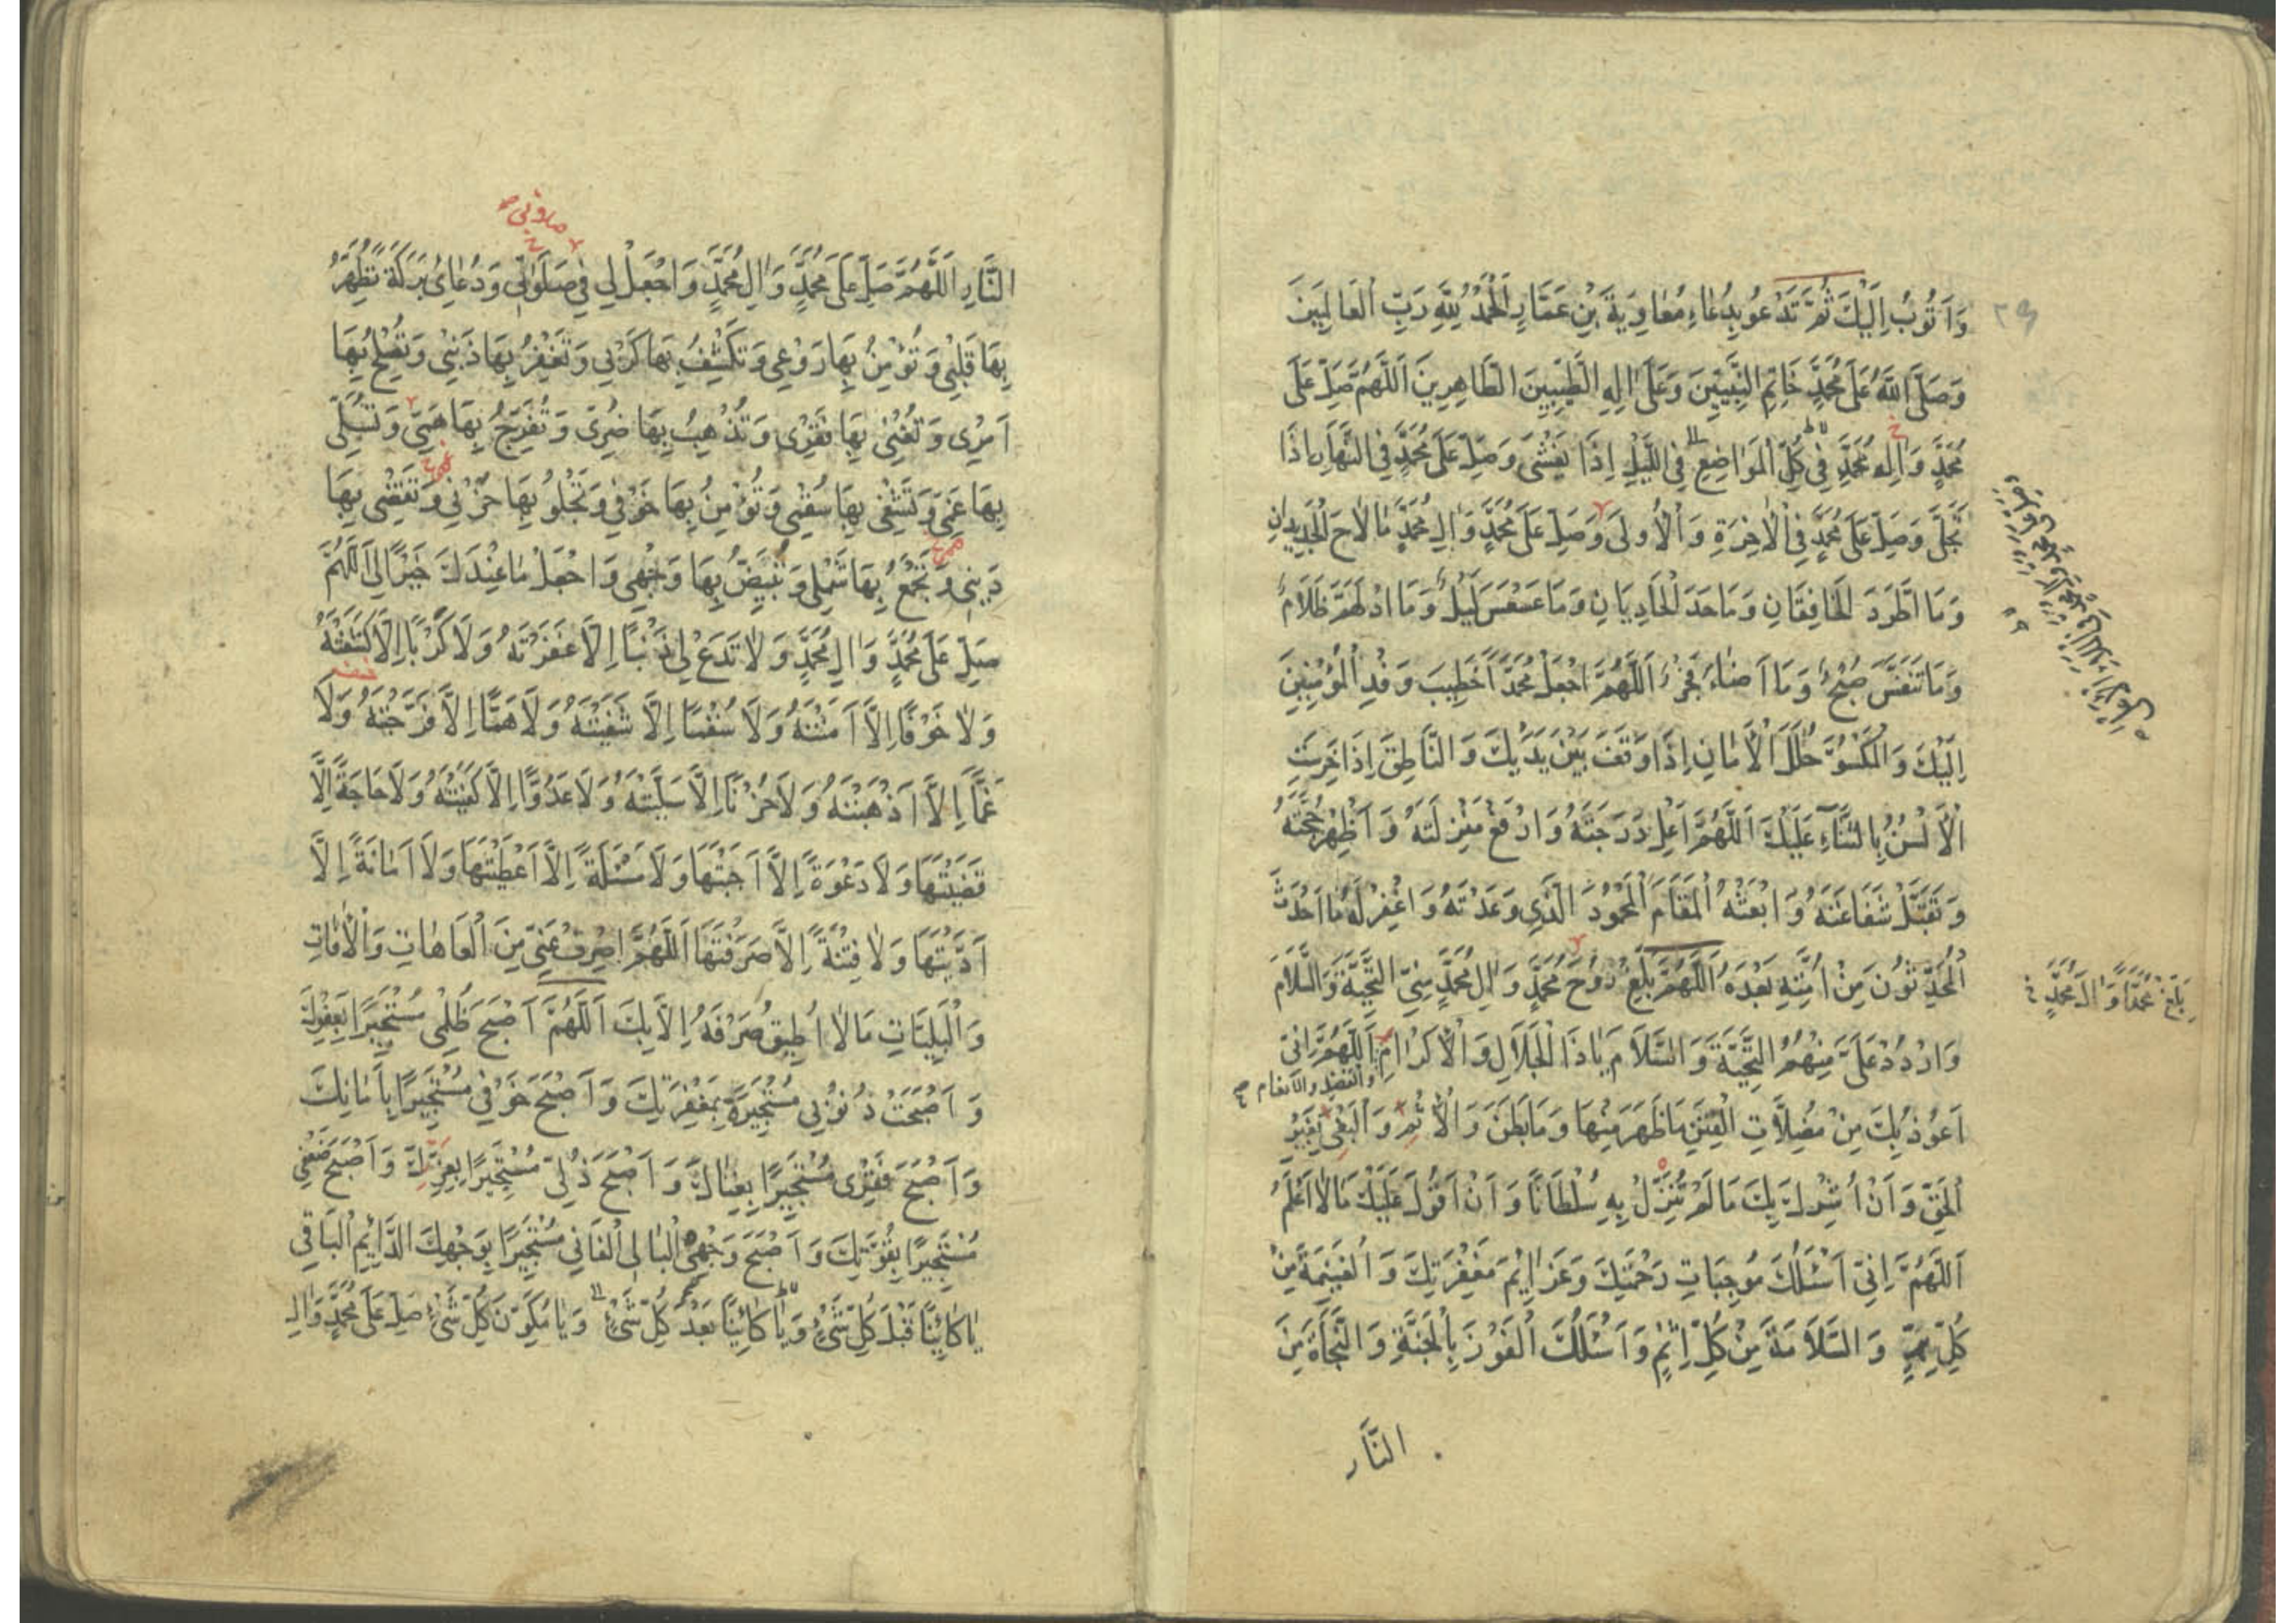 وَاَتُوبُ اِلَيْكَ ثُمَّ تَدْعُو بِدُعَاءِ مُعَاوِيَةَ بْنِ عَمَّارٍ اَلْحَمْدُ لِلّٰهِ رَبِّ الْعَالَمِينَ
وَصَلَّى اللّٰهُ عَلٰى مُحَمَّدٍ خَاتِمِ النَّبِيِّينَ وَعَلٰى اٰلِهِ الطَّيِّبِينَ الطَّاهِرِينَ اَللّٰهُمَّ صَلِّ عَلٰى
مُحَمَّدٍ وَاٰلِ مُحَمَّدٍ فِي كُلِّ الْمَوَاضِعِ فِي اللَّيْلِ اِذَا يَغْشٰى وَصَلِّ عَلٰى مُحَمَّدٍ فِي النَّهَارِ اِذَا
تَجَلّٰى وَصَلِّ عَلٰى مُحَمَّدٍ فِي الْاٰخِرَةِ وَالْاُولٰى وَصَلِّ عَلٰى مُحَمَّدٍ وَاٰلِ مُحَمَّدٍ مَا لَاحَ الْجَدِيدَانِ
وَمَا اطَّرَدَ الْخَافِقَانِ وَمَا حَدَا الْحَادِيَانِ وَمَا عَسْعَسَ لَيْلٌ وَمَا ادْلَهَمَّ ظَلَامٌ
وَمَا تَنَفَّسَ صُبْحٌ وَمَا اَضَاءَ فَجْرٌ اَللّٰهُمَّ اجْعَلْ مُحَمَّدًا خَطِيبَ وَفْدِ الْمُؤْمِنِينَ
اِلَيْكَ وَالْمَكْسُوَّ حُلَلَ الْاَمَانِ اِذَا وَقَفَ بَيْنَ يَدَيْكَ وَالنَّاطِقَ اِذَا خَرِسَتِ
الْاَلْسُنُ بِالثَّنَاءِ عَلَيْكَ اَللّٰهُمَّ اَعْلِ دَرَجَتَهُ وَارْفَعْ مَنْزِلَتَهُ وَاَظْهِرْ حُجَّتَهُ
وَتَقَبَّلْ شَفَاعَتَهُ وَابْعَثْهُ الْمَقَامَ الْمَحْمُودَ الَّذِي وَعَدْتَهُ وَاغْفِرْ لَهُ مَا اَحْدَثَ
الْمُحْدِثُونَ مِنْ اُمَّتِهِ بَعْدَهُ اَللّٰهُمَّ بَلِّغْ رُوحَ مُحَمَّدٍ وَاٰلِ مُحَمَّدٍ مِنِّي التَّحِيَّةَ وَالسَّلَامَ
بَلِّغْ مُحَمَّدًا وَاٰلَ مُحَمَّدٍ خ
وَارْدُدْ عَلَيَّ مِنْهُمُ التَّحِيَّةَ وَالسَّلَامَ يَا ذَا الْجَلَالِ وَالْاِكْرَامِ اَللّٰهُمَّ اِنِّي
والفضل والانعام
اَعُوذُ بِكَ مِنْ مُضِلَّاتِ الْفِتَنِ مَا ظَهَرَ مِنْهَا وَمَا بَطَنَ وَالْاِثْمِ وَالْبَغْيِ بِغَيْرِ
الْحَقِّ وَاَنْ اُشْرِكَ بِكَ مَا لَمْ تُنَزِّلْ بِهِ سُلْطَانًا وَاَنْ اَقُولَ عَلَيْكَ مَا لَا اَعْلَمُ
اَللّٰهُمَّ اِنِّي اَسْئَلُكَ مُوجِبَاتِ رَحْمَتِكَ وَعَزَائِمَ مَغْفِرَتِكَ وَالْغَنِيمَةَ مِنْ
كُلِّ بِرٍّ وَالسَّلَامَةَ مِنْ كُلِّ اِثْمٍ وَاَسْئَلُكَ الْفَوْزَ بِالْجَنَّةِ وَالنَّجَاةَ مِنَ
النَّارِ
صلوتی
النَّارِ اَللّٰهُمَّ صَلِّ عَلٰى مُحَمَّدٍ وَاٰلِ مُحَمَّدٍ وَاجْعَلْ لِي فِي صَلَوَاتِي وَدُعَائِي بَرَكَةً تُطَهِّرُ
بِهَا قَلْبِي وَتُؤْمِنُ بِهَا رَوْعِي وَتَكْشِفُ بِهَا كَرْبِي وَتَغْفِرُ بِهَا ذَنْبِي وَتُصْلِحُ بِهَا
اَمْرِي وَتُغْنِي بِهَا فَقْرِي وَتُذْهِبُ بِهَا ضُرِّي وَتُفَرِّجُ بِهَا هَمِّي وَتُسَلِّي
بِهَا غَمِّي وَتَشْفِي بِهَا سُقْمِي وَتُؤْمِنُ بِهَا خَوْفِي وَتَجْلُو بِهَا حُزْنِي وَتَقْضِي بِهَا
دَيْنِي وَتَجْمَعُ بِهَا شَمْلِي وَتُبَيِّضُ بِهَا وَجْهِي وَاجْعَلْ مَا عِنْدَكَ خَيْرًا لِي اَللّٰهُمَّ
صَلِّ عَلٰى مُحَمَّدٍ وَاٰلِ مُحَمَّدٍ وَلَا تَدَعْ لِي ذَنْبًا اِلَّا غَفَرْتَهُ وَلَا كَرْبًا اِلَّا كَشَفْتَهُ
وَلَا خَوْفًا اِلَّا اٰمَنْتَهُ وَلَا سُقْمًا اِلَّا شَفَيْتَهُ وَلَا هَمًّا اِلَّا فَرَّجْتَهُ وَلَا
غَمًّا اِلَّا اَذْهَبْتَهُ وَلَا حُزْنًا اِلَّا سَلَّيْتَهُ وَلَا عَدُوًّا اِلَّا كَفَيْتَهُ وَلَا حَاجَةً اِلَّا
قَضَيْتَهَا وَلَا دَعْوَةً اِلَّا اَجَبْتَهَا وَلَا مَسْئَلَةً اِلَّا اَعْطَيْتَهَا وَلَا اَمَانَةً اِلَّا
اَدَّيْتَهَا وَلَا فِتْنَةً اِلَّا صَرَفْتَهَا اَللّٰهُمَّ اصْرِفْ عَنِّي مِنَ الْعَاهَاتِ وَالْاٰفَاتِ
وَالْبَلِيَّاتِ مَا لَا اُطِيقُ صَرْفَهُ اِلَّا بِكَ اَللّٰهُمَّ اَصْبَحَ ظُلْمِي مُسْتَجِيرًا بِعَفْوِكَ
وَاَصْبَحَتْ ذُنُوبِي مُسْتَجِيرَةً بِمَغْفِرَتِكَ وَاَصْبَحَ خَوْفِي مُسْتَجِيرًا بِاَمَانِكَ
وَاَصْبَحَ فَقْرِي مُسْتَجِيرًا بِغِنَاكَ وَاَصْبَحَ ذُلِّي مُسْتَجِيرًا بِعِزِّكَ وَاَصْبَحَ ضَعْفِي
مُسْتَجِيرًا بِقُوَّتِكَ وَاَصْبَحَ وَجْهِيَ الْبَالِي الْفَانِي مُسْتَجِيرًا بِوَجْهِكَ الدَّائِمِ الْبَاقِي
يَا كَائِنًا قَبْلَ كُلِّ شَيْءٍ وَيَا كَائِنًا بَعْدَ كُلِّ شَيْءٍ وَيَا مُكَوِّنَ كُلِّ شَيْءٍ صَلِّ عَلٰى مُحَمَّدٍ وَاٰلِ